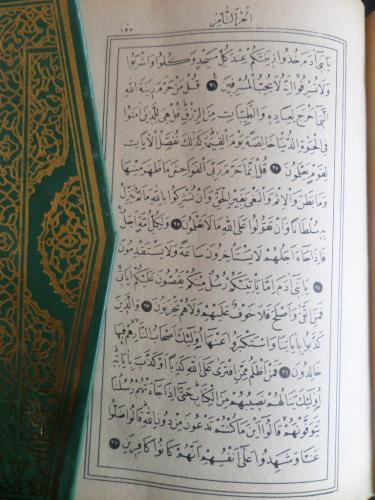 الجزء الثامن
١٥٥
يَا بَنِي آدَمَ خُذُوا زِينَتَكُمْ عِنْدَ كُلِّ مَسْجِدٍ وَكُلُوا وَاشْرَبُوا
وَلَا تُسْرِفُوا إِنَّهُ لَا يُحِبُّ الْمُسْرِفِينَ قُلْ مَنْ حَرَّمَ زِينَةَ اللهِ
الَّتِي أَخْرَجَ لِعِبَادِهِ وَالطَّيِّبَاتِ مِنَ الرِّزْقِ قُلْ هِيَ لِلَّذِينَ آمَنُوا
فِي الْحَيٰوةِ الدُّنْيَا خَالِصَةً يَوْمَ الْقِيٰمَةِ كَذٰلِكَ نُفَصِّلُ الْآيَاتِ
لِقَوْمٍ يَعْلَمُونَ قُلْ إِنَّمَا حَرَّمَ رَبِّيَ الْفَوَاحِشَ مَا ظَهَرَ مِنْهَا
وَمَا بَطَنَ وَالْإِثْمَ وَالْبَغْيَ بِغَيْرِ الْحَقِّ وَأَنْ تُشْرِكُوا بِاللهِ مَا لَمْ يُنَزِّلْ
بِهِ سُلْطَانًا وَأَنْ تَقُولُوا عَلَى اللهِ مَا لَا تَعْلَمُونَ وَلِكُلِّ أُمَّةٍ أَجَلٌ
فَإِذَا جَاءَ أَجَلُهُمْ لَا يَسْتَأْخِرُونَ سَاعَةً وَلَا يَسْتَقْدِمُونَ
يَا بَنِي آدَمَ إِمَّا يَأْتِيَنَّكُمْ رُسُلٌ مِنْكُمْ يَقُصُّونَ عَلَيْكُمْ آيَاتِي
فَمَنِ اتَّقٰى وَأَصْلَحَ فَلَا خَوْفٌ عَلَيْهِمْ وَلَا هُمْ يَحْزَنُونَ وَالَّذِينَ
كَذَّبُوا بِآيَاتِنَا وَاسْتَكْبَرُوا عَنْهَا أُولٰئِكَ أَصْحَابُ النَّارِ هُمْ فِيهَا
خَالِدُونَ فَمَنْ أَظْلَمُ مِمَّنِ افْتَرٰى عَلَى اللهِ كَذِبًا أَوْ كَذَّبَ بِآيَاتِهِ
أُولٰئِكَ يَنَالُهُمْ نَصِيبُهُمْ مِنَ الْكِتَابِ حَتّٰى إِذَا جَاءَتْهُمْ رُسُلُنَا
يَتَوَفَّوْنَهُمْ قَالُوا أَيْنَ مَا كُنْتُمْ تَدْعُونَ مِنْ دُونِ اللهِ قَالُوا ضَلُّوا
عَنَّا وَشَهِدُوا عَلٰى أَنْفُسِهِمْ أَنَّهُمْ كَانُوا كَافِرِينَ